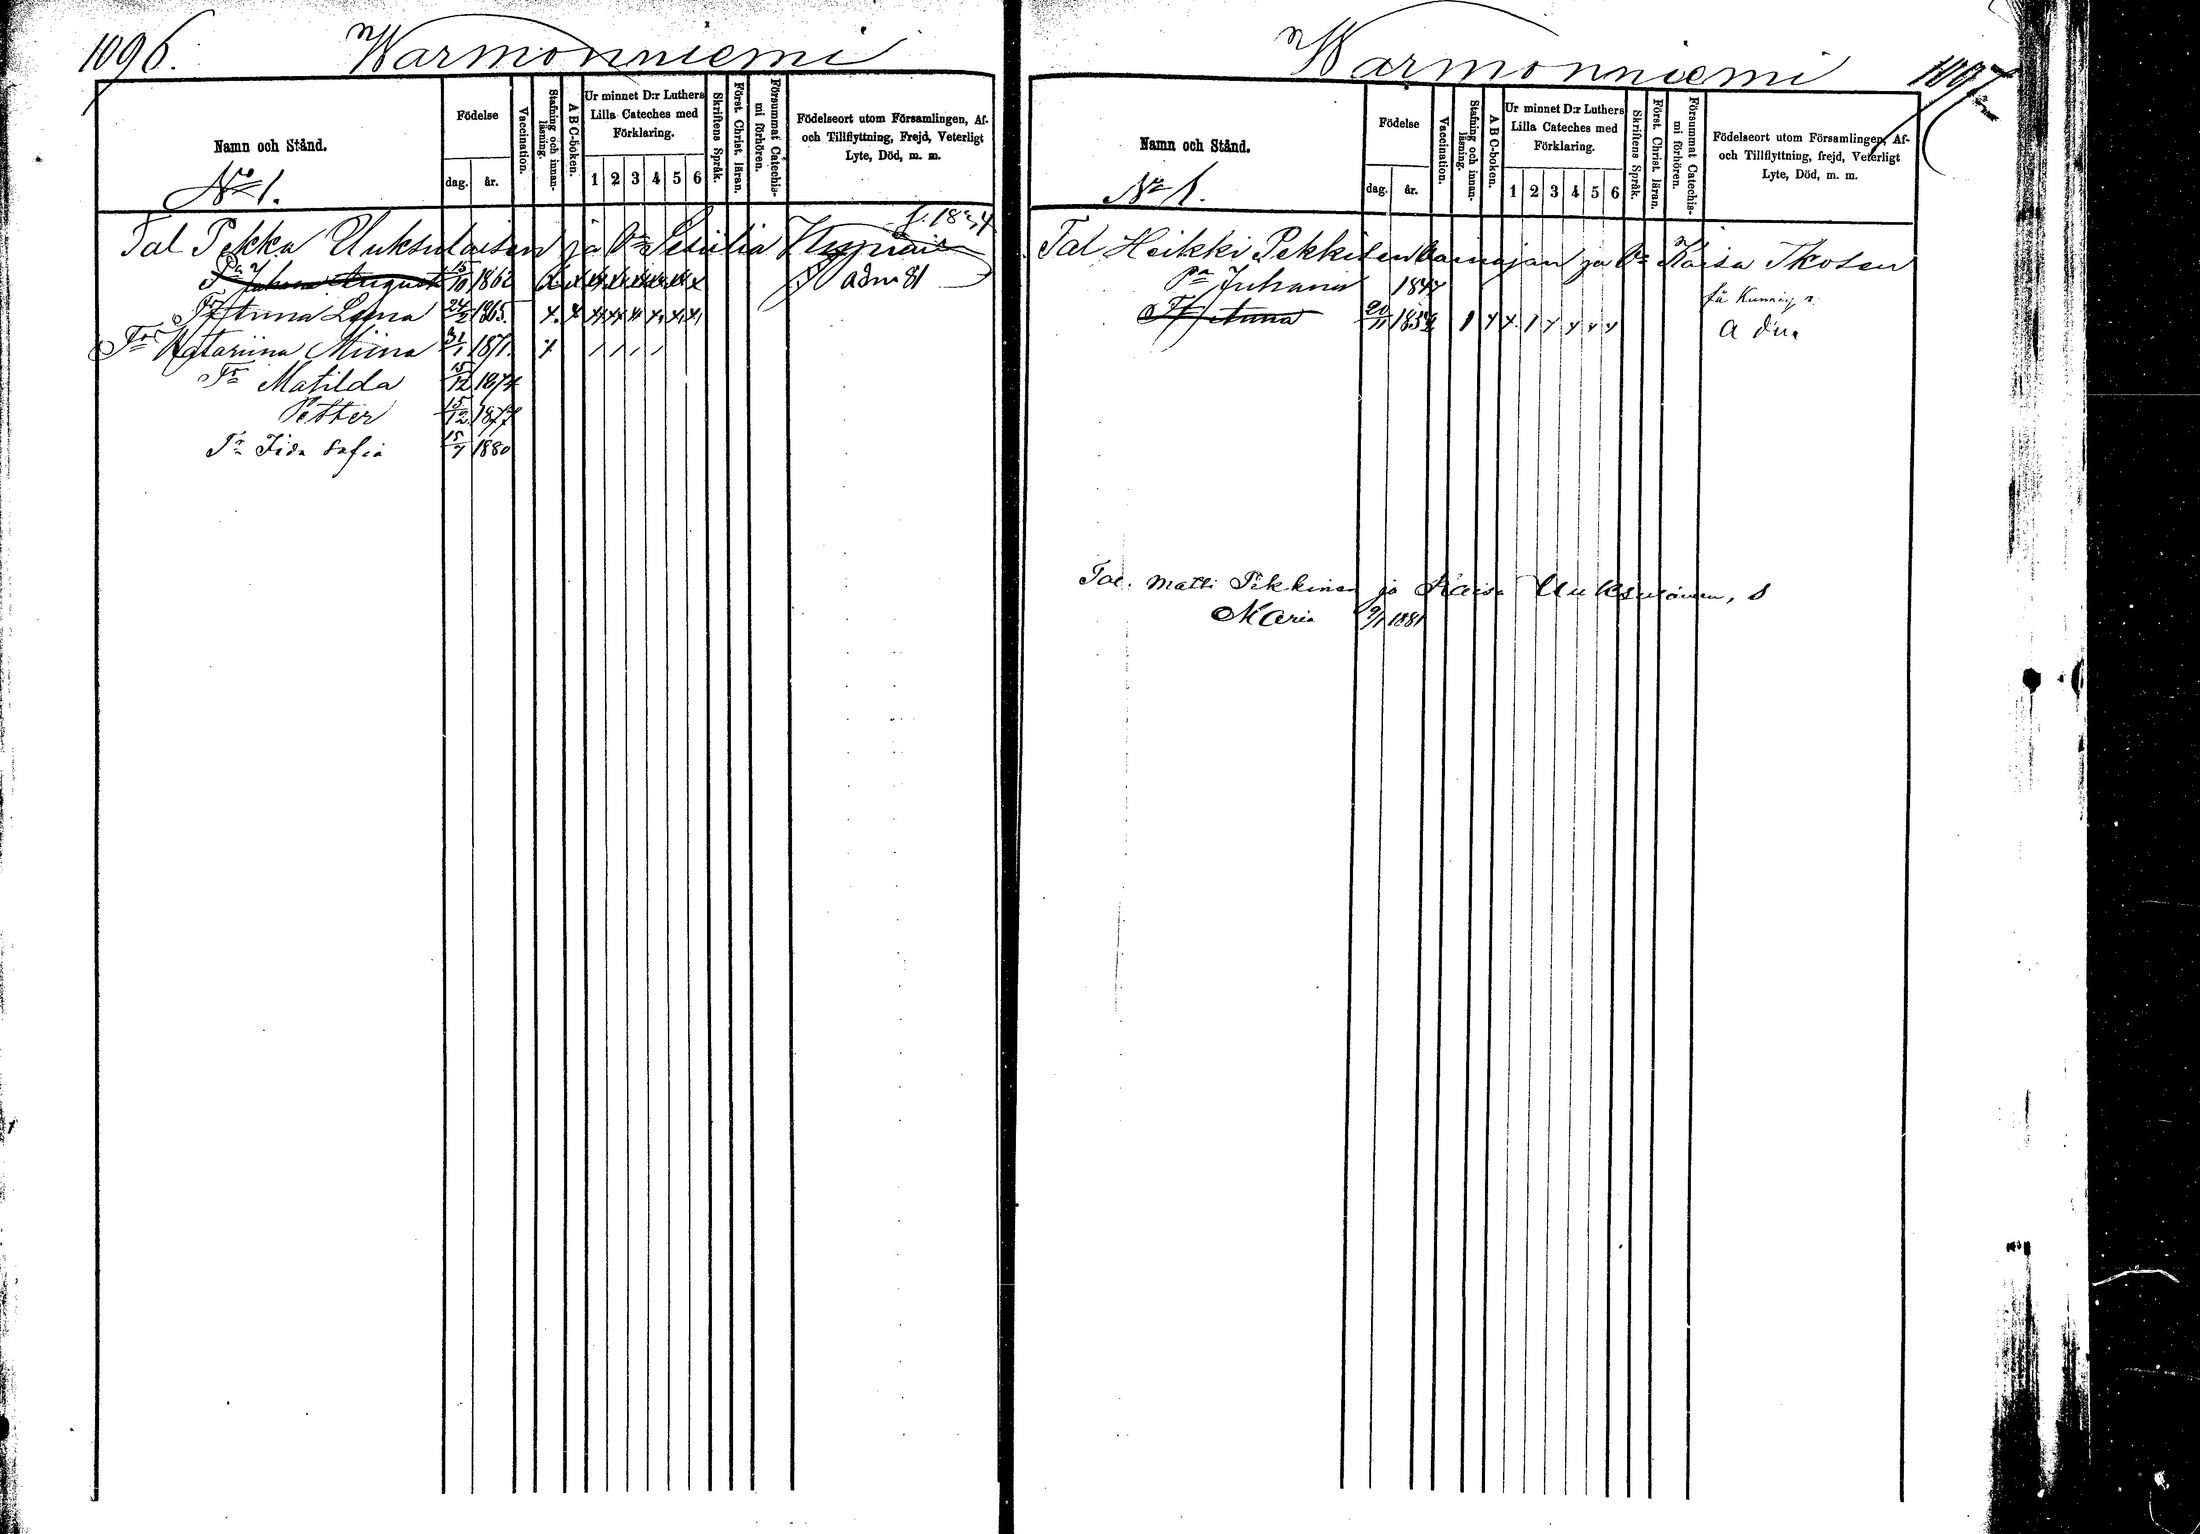 1096.
Warmonniemi
Namn och Stånd.
Födelse
dag.
år.
Vaccination.
Stafning och innanläsning.
A B C-boken.
Ur minnet D:r Luthers
Lilla Cateches med
Förklaring.
1 2 3 4 5 6
Skriftens Språk.
Först. Christ. läran.
Försummat Catechismi förhören.
Födelseort utom Församlingen, Af-
och Tillflyttning, Frejd, Veterligt
Lyte, Död, m. m.
No 1.
Tal Pekka Uuksulaisen ja Vn
Pa Juhana August 15/10 1862 adm 81
Tr Anna Lena 24/2 1865.
Tr Katariina Miina 31/1 1871.
Tr Matilda 15/12 1874
Petter 15/12 1877
Tr Iida Sofia 15/7 1880
Warmonniemi
1097
Namn och Stånd.
Födelse
dag.
år.
Vaccination.
Stafning och innanläsning.
A B C-boken.
Ur minnet D:r Luthers
Lilla Cateches med
Förklaring.
1 2 3 4 5 6
Skriftens Språk.
Först. Christ. läran.
Försummat Catechismi förhören.
Födelseort utom Församlingen, Af-
och Tillflyttning, frejd, Veterligt
Lyte, Död, m. m.
No 1.
Tal Heikki Pekkisen ja Vn Kaisa Ikosen
Pa Juhana 1847
Tr Anna 20/11
Tal. Matti Pekkinen ja Kaisa
Maria 9/1 1881